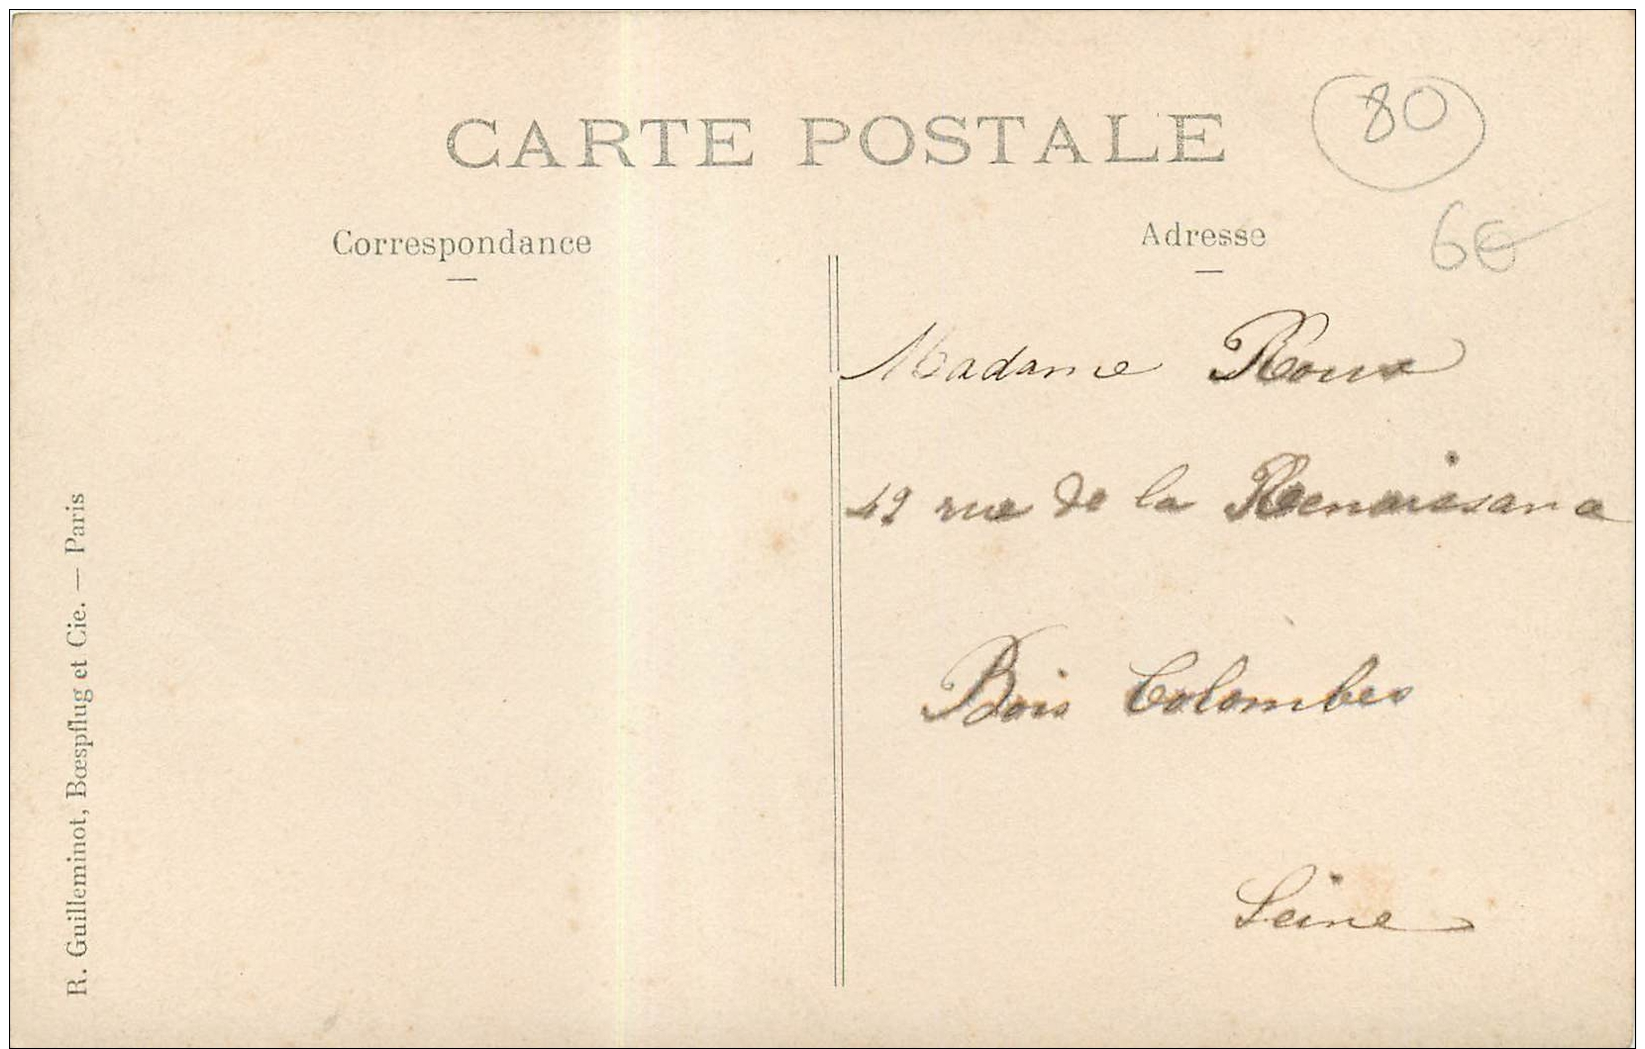 CARTE POSTALE
80
6€
Correspondance
Adresse
Madame Roux
49 rue de la Renaissance
Bois Colombes
Seine
R. Guilleminot, Bœspflug et Cie. — Paris